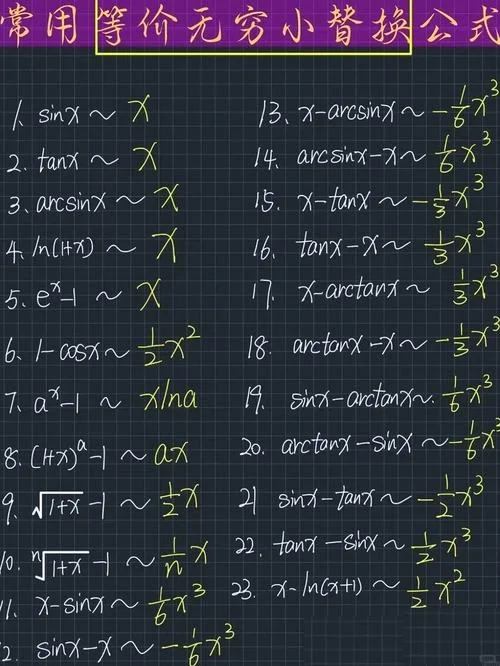 常用等价无穷小替换公式
1. sinx ~ x
2. tanx ~ x
3. arcsinx ~ x
4. ln(1+x) ~ x
5. e^x-1 ~ x
6. 1-cosx ~ 1/2 x^2
7. a^x-1 ~ xlna
8. (1+x)^a-1 ~ ax
9. √(1+x)-1 ~ 1/2 x
10. ⁿ√(1+x)-1 ~ 1/n x
11. x-sinx ~ 1/6 x^3
12. sinx-x ~ -1/6 x^3
13. x-arcsinx ~ -1/6 x^3
14. arcsinx-x ~ 1/6 x^3
15. x-tanx ~ -1/3 x^3
16. tanx-x ~ 1/3 x^3
17. x-arctanx ~ 1/3 x^3
18. arctanx-x ~ -1/3 x^3
19. sinx-arctanx ~ 1/6 x^3
20. arctanx-sinx ~ -1/6 x^3
21 sinx-tanx ~ -1/2 x^3
22. tanx-sinx ~ 1/2 x^3
23. x-ln(x+1) ~ 1/2 x^2